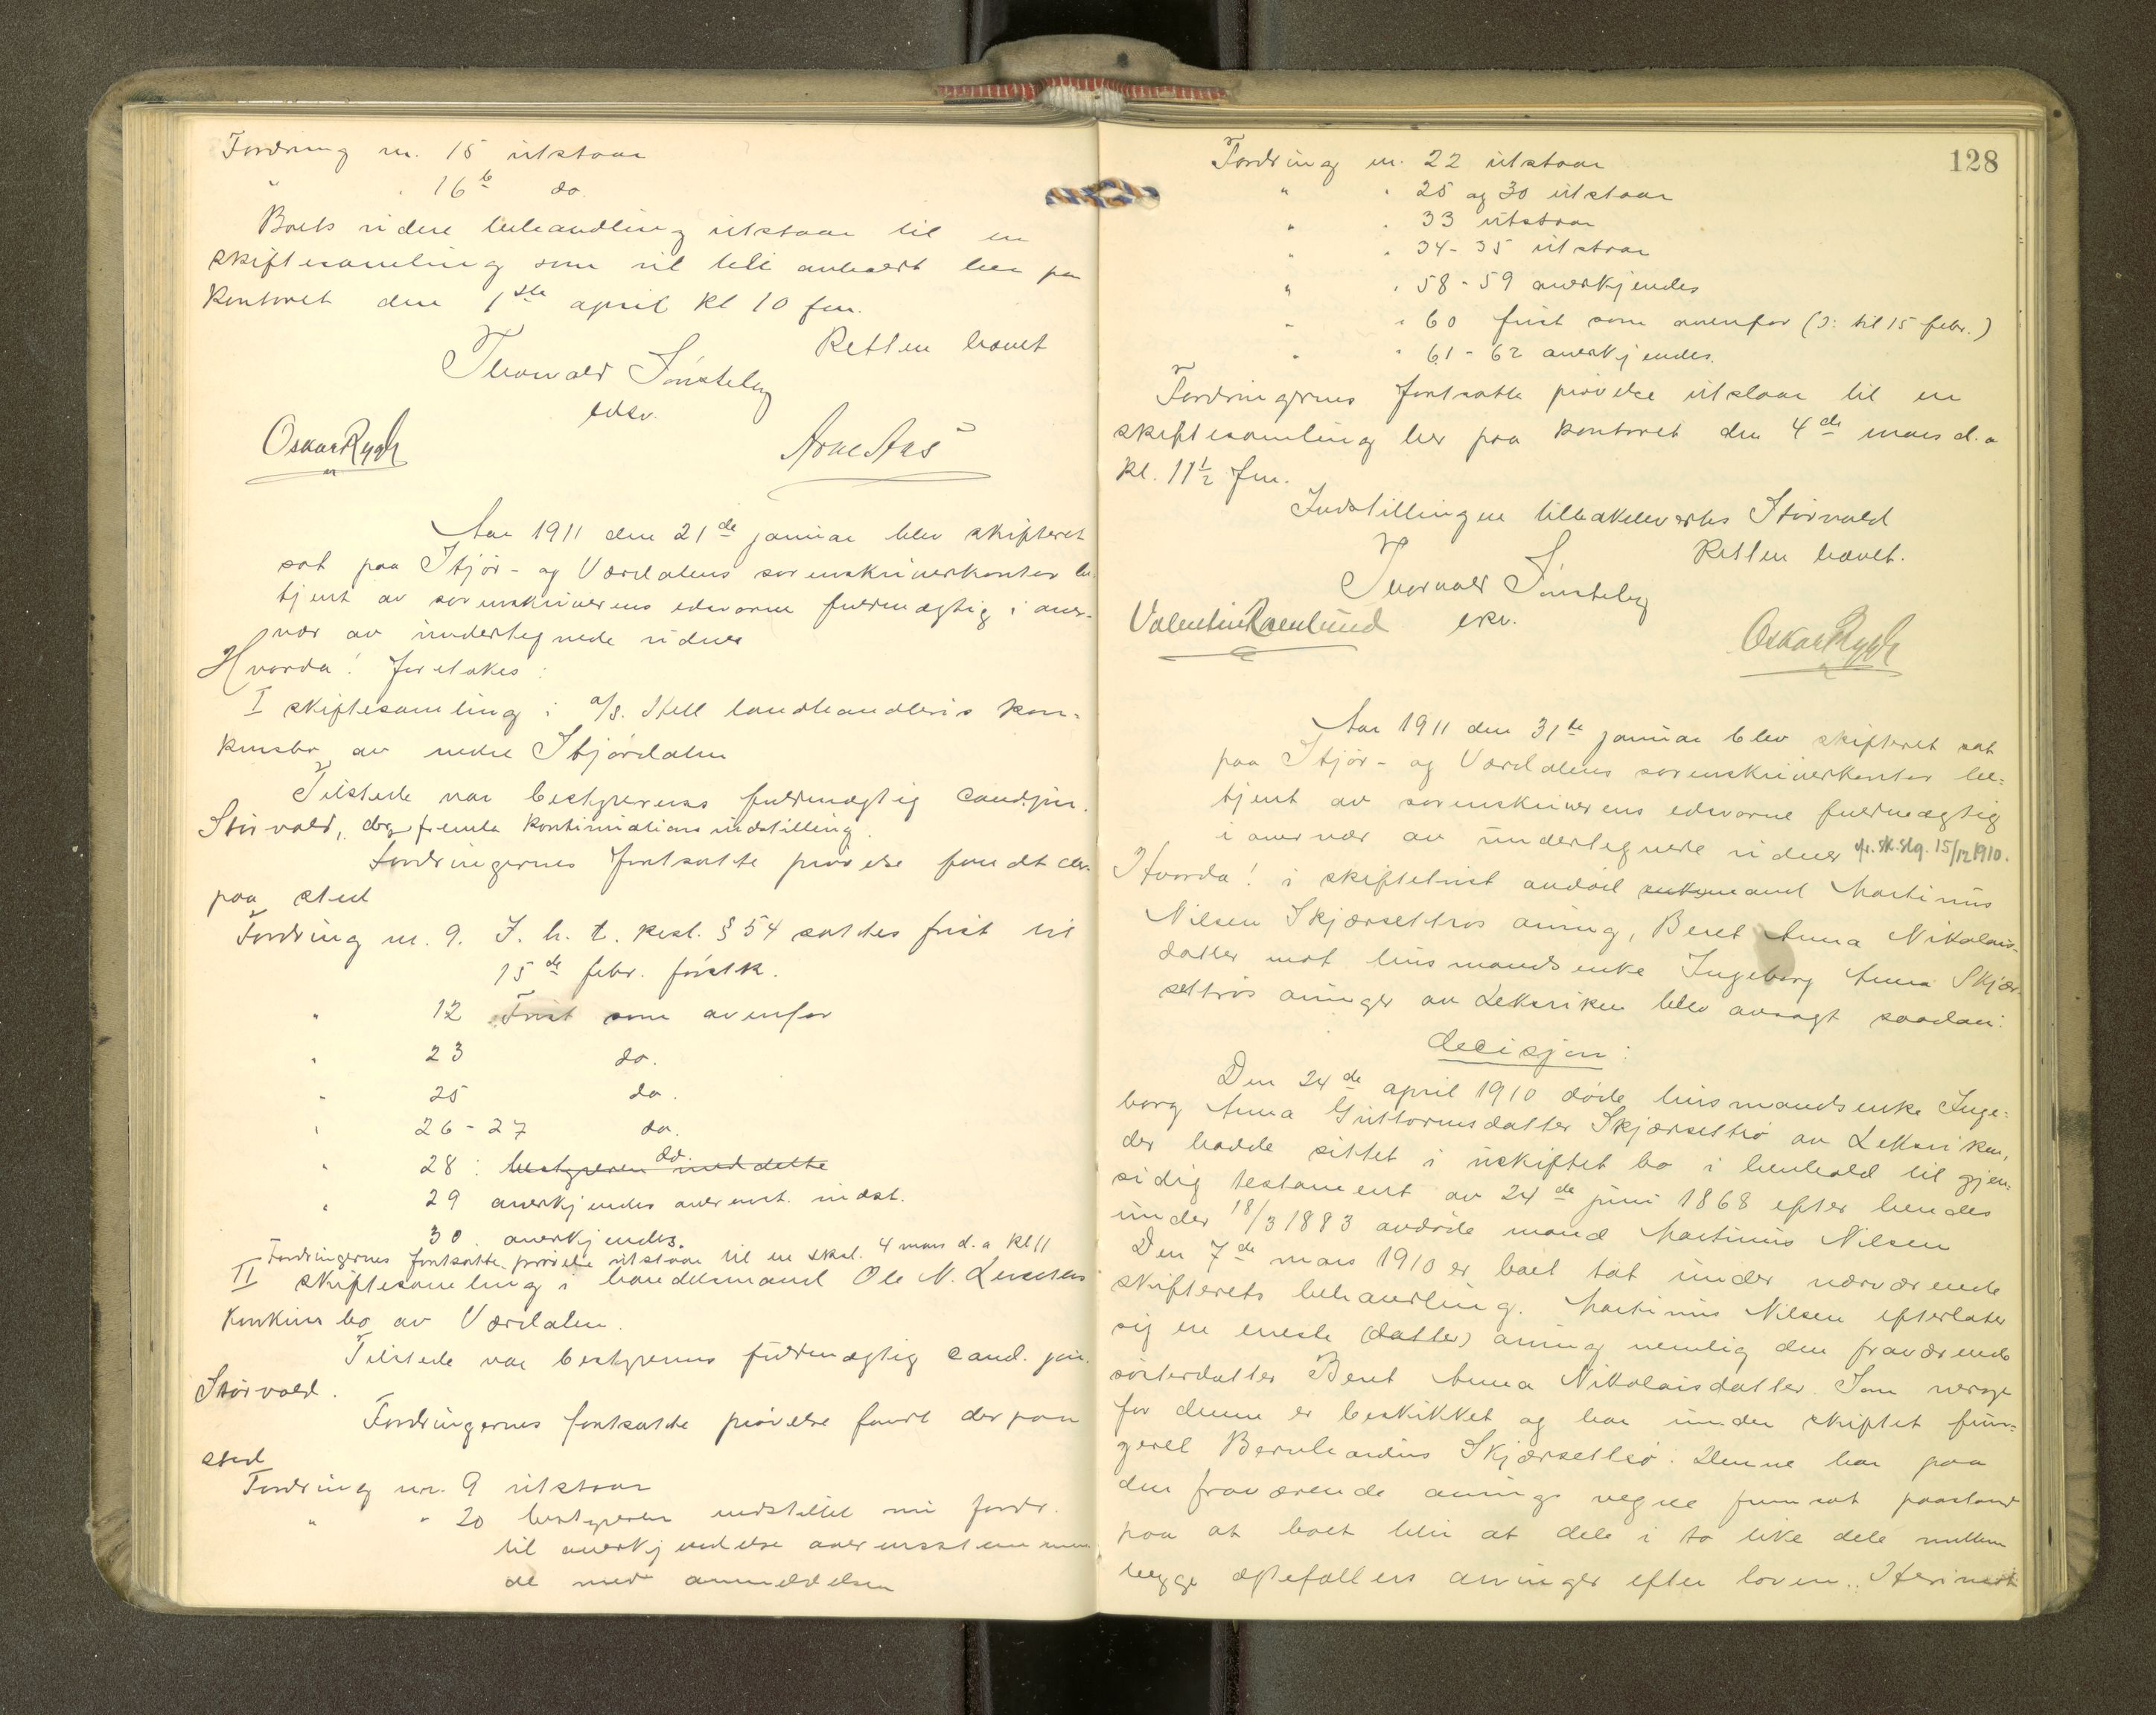 Fordring nr. 15 utstaar
" " 16b do.
Boets videre behandling utstaar til en
skiftesamling som vil bli avholdt her paa
kontoret den 1ste april kl 10 fm.
Retten hævet
Thorvald Sünsteby
edsv.
Oskar Rygh
Arne Aas
Aar 1911 den 21de januar blev skifteret
sat paa Stjør- og Værdalens sorenskriverkontor be-
tjent av sorenskriverens edsvorne fuldmægtig i over-
vær av undertegnede vidner
Hvorda! foretokes:
I skiftesamling i a/s. Hell landhandleris kon-
kursbo av nedre Stjørdalen
Tilstede var bestyrerens fuldmægtig cand. jur.
Störvold, der freml. kontinuationsindstilling.
Fordringernes fortsatte prøvelse fandt der-
paa sted
Fordring nr. 9. I. h. t. kksl. § 54 sattes frist til
15de febr. førstk.
" 12 Frist som ovenfor
" 23 do.
" 25 do.
" 26-27 do.
" 28: bestyreren med dette do.
" 29 anerkjendes overenst. indst.
30. anerkjendes.
Fordringernes fortsatte prøvelse utstaar til en sksl. 4 mars d.a kl 11
II skiftesamling i handelsmand Ole N.
konkursbo av Værdalen.
Tilstede var bestyrerens fuldmægtig cand. jur.
Störvold.
Fordringernes fortsatte prøvelse fandt der paa
sted
Fordring nr. 9 utstaar
" " 20 bestyreren indstillet nu fordr.
til anerkjendelse overensstemmen
de med anmeldelsen
128
Fordring nr. 22 utstaar
" " 25 og 30 utstaar
" " 33 utstaar
" " 34-35 utstaar
" " 58-59 anerkjendes
" " 60 frist som ovenfor (ɔ: til 15 febr.)
" " 61-62 anerkjendes.
Fordringernes fortsatte prøvelse utstaar til en
skiftesamling her paa kontoret den 4de mars d.a
kl. 11½ fm.
Indstillingen tilbakelevertes Störvold
Retten hævet.
Thorvald Sünsteby
edsv.
Valentin Roenlund
Oskar Rygh
Aar 1911 den 31te januar blev skifteret sat
paa Stjør- og Værdalens sorenskriverkontor be-
tjent av sorenskriverens edsvorne fuldmægtig
i overvær av undertegnede vidner
cfr. sk. slg. 15/12 1910.
Hvorda! i skiftetvist avdød mand Martinus
Nilsen Skjærsettrøs arving, Beret Anna Nikolais-
datter mot husmandsenke Ingeborg Anna Skjær-
settrøs arvinger av Leksviken blev avsagt saadan:
decisjon:
Den 24de april 1910 døde husmandsenke Inge-
borg Anna Guttormsdatter Skjærsettrø av Leksviken,
der hadde sittet i uskiftet bo i henhold til gjen-
sidig testament av 24de juni 1868 efter hendes
under 18/3 1893 avdøde mand Martinus Nilsen
Den 7de mars 1910 er boet tat under nærværende
skifterets behandling. Martinus Nilsen efterlater
sig en eneste (datter) arving nemlig den fraværende
søsterdatter Beret Anna Nikolaisdatter. Som verge
for denne er beskikket og har under skiftet fun-
geret Bernhardus Skjærsettrø. Denne har paa
den fraværende arvings vegne fremsat paastand
paa at boet blir at dele i to like dele mellem
begge egtefællers arvinger efter loven. Herimot